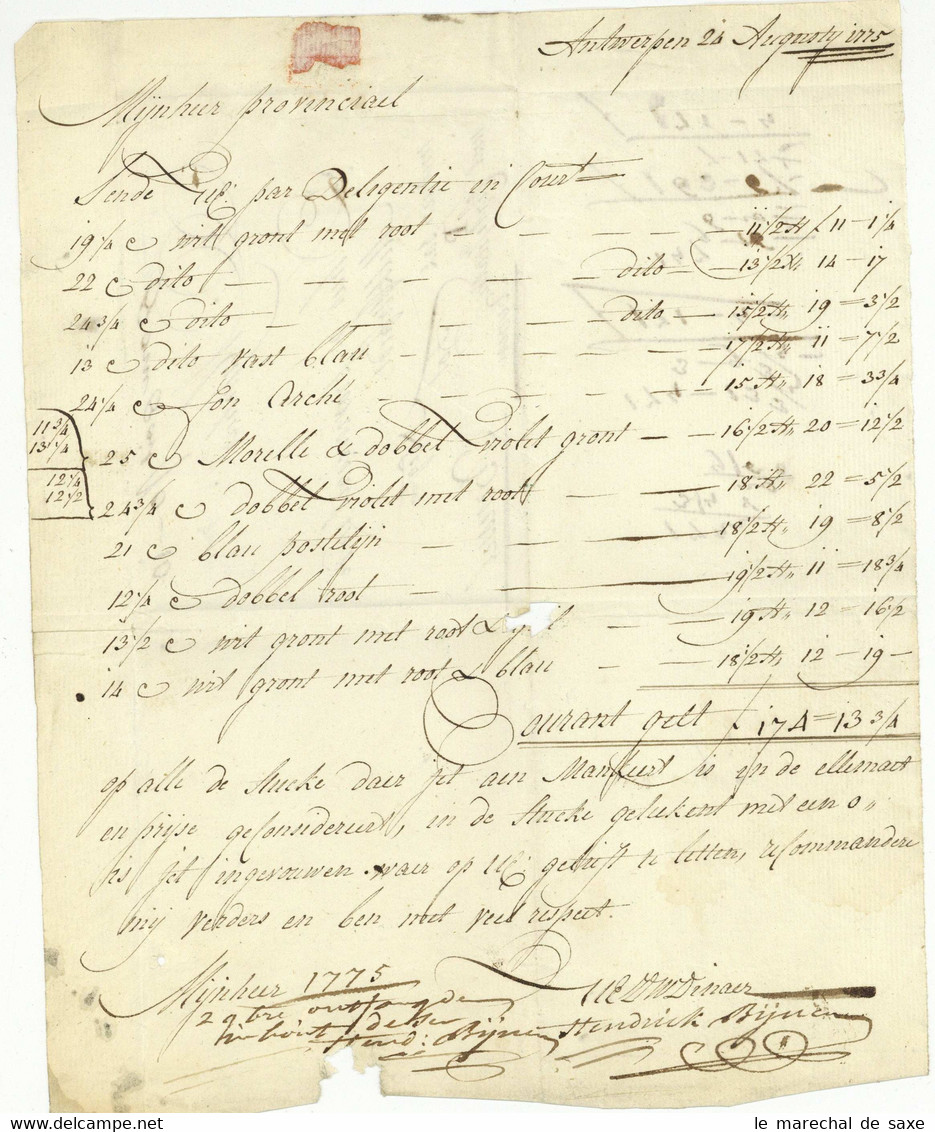 Antwerpen 24 Augusty 1775
Mijnheer provinciael
Sende UE: par Deligentie in Court
19 1/4 e wit gront met root — — — — 11 1/2 st f 11 – 1 1/4
22 e dito — — — — dito — 13 1/2 st 14 – 17
24 3/4 e dito — — — — dito — 15 1/2 st 19 = 3 1/2
13 e dito vast blau — — — — 17 1/2 st 11 = 7 1/2
24 1/4 e fon Arché — — — — 15 st 18 = 3 3/4
11 3/4
13 1/4
25 e Morelle & dobbel violet gront — — 16 1/2 st 20 = 12 1/2
12 1/4
12 1/2
24 3/4 e dobbel violet met root — — 18 st 22 = 5 1/2
21 e blau postelijn — — — — 18 1/2 st 19 = 8 1/2
12 1/4 e dobbel root — — — — 19 1/2 st 11 = 18 3/4
13 1/2 e wit gront met root & — — 19 st 12 = 16 1/2
14 e wit gront met root & blau — — 18 1/2 st 12 – 19 –
Courant gelt f 174 = 13 3/4
op alle de stucke daer jet aen Mankeert is in de ellemaet
en prijse geconsidereert, in de stucke geteekent met een o
is jet ingevouwen waer op UE gelieft te letten, recommandere
mij verders en ben met veel respect.
Mijnheer UE DW Dinaer
1775
29bre ontfangde
inhout deser
Hend: Bijnen
Hendrick Bijnen
le marechal de saxe